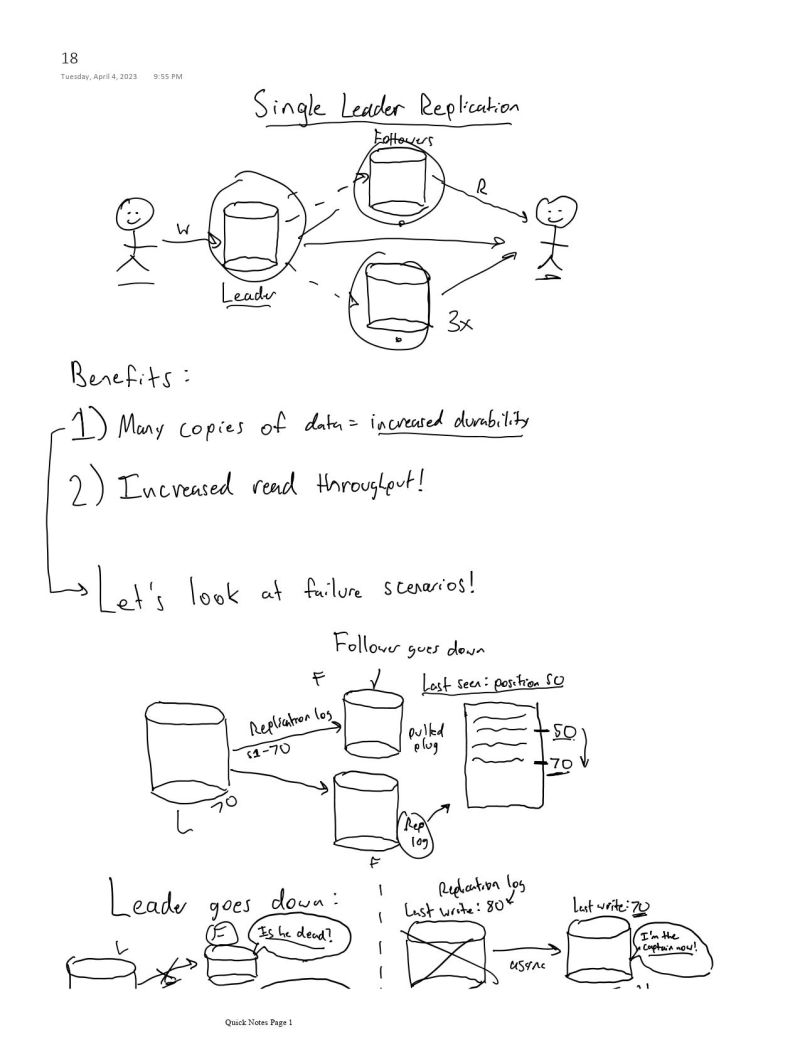 18
Tuesday, April 4, 2023 9:55 PM
Single Leader Replication
Followers
R
W
Leader
3x
Benefits:
1) Many copies of data = increased durability
2) Increased read throughput!
Let's look at failure scenarios!
Follower goes down
F
Last seen: position 50
Replication log
51-70
pulled
plug
50
70
L
70
Rep
log
F
Leader goes down:
L
F
Is he dead?
Replication log
Last write: 80
async
Last write: 70
I'm the
captain now!
Quick Notes Page 1